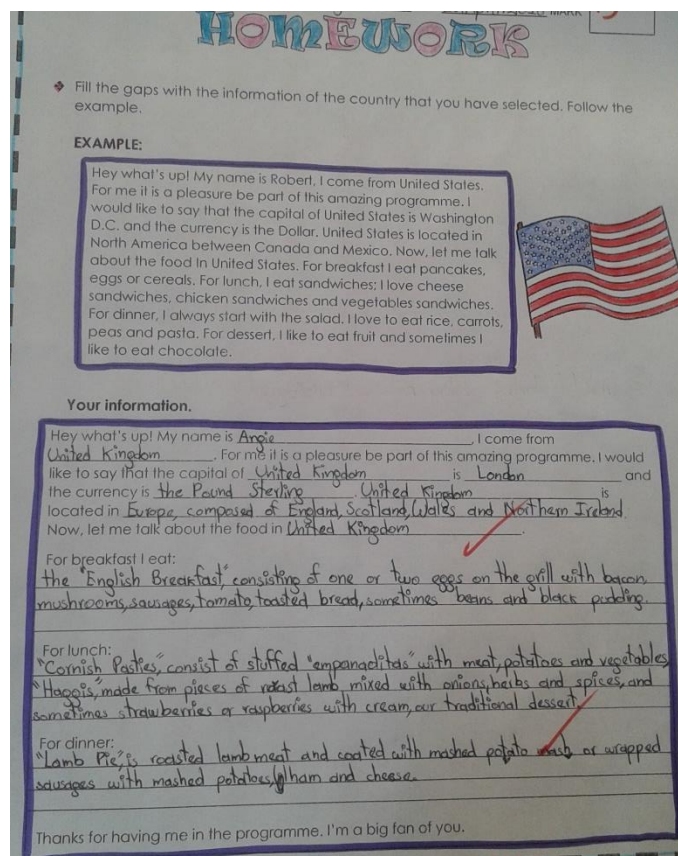 MARK
HOMEWORK
Fill the gaps with the information of the country that you have selected. Follow the
example.
EXAMPLE:
Hey what's up! My name is Robert. I come from United States.
For me it is a pleasure be part of this amazing programme. I
would like to say that the capital of United States is Washington
D.C. and the currency is the Dollar. United States is located in
North America between Canada and Mexico. Now, let me talk
about the food In United States. For breakfast I eat pancakes,
eggs or cereals. For lunch, I eat sandwiches; I love cheese
sandwiches, chicken sandwiches and vegetables sandwiches.
For dinner, I always start with the salad. I love to eat rice, carrots,
peas and pasta. For dessert, I like to eat fruit and sometimes I
like to eat chocolate.
Your information.
Hey what's up! My name is Angie. I come from
United Kingdom. For me it is a pleasure be part of this amazing programme. I would
like to say that the capital of United Kingdom is London and
the currency is the Pound Sterling. United Kingdom is
located in Europe, composed of England, Scotland, Wales and Northern Ireland.
Now, let me talk about the food in United Kingdom.
For breakfast I eat:
the "English Breakfast", consisting of one or two eggs on the grill with bacon,
mushrooms, sausages, tomato, toasted bread, sometimes beans and black pudding.
For lunch:
"Cornish Pasties", consist of stuffed "empanaditas" with meat, potatoes and vegetables,
"Haggis", made from pieces of roast lamb mixed with onions, herbs and spices, and
sometimes strawberries or raspberries with cream, our traditional dessert.
For dinner:
"Lamb Pie", is roasted lamb meat and coated with mashed potato or wrapped
sausages with mashed potatoes, ham and cheese.
Thanks for having me in the programme. I'm a big fan of you.